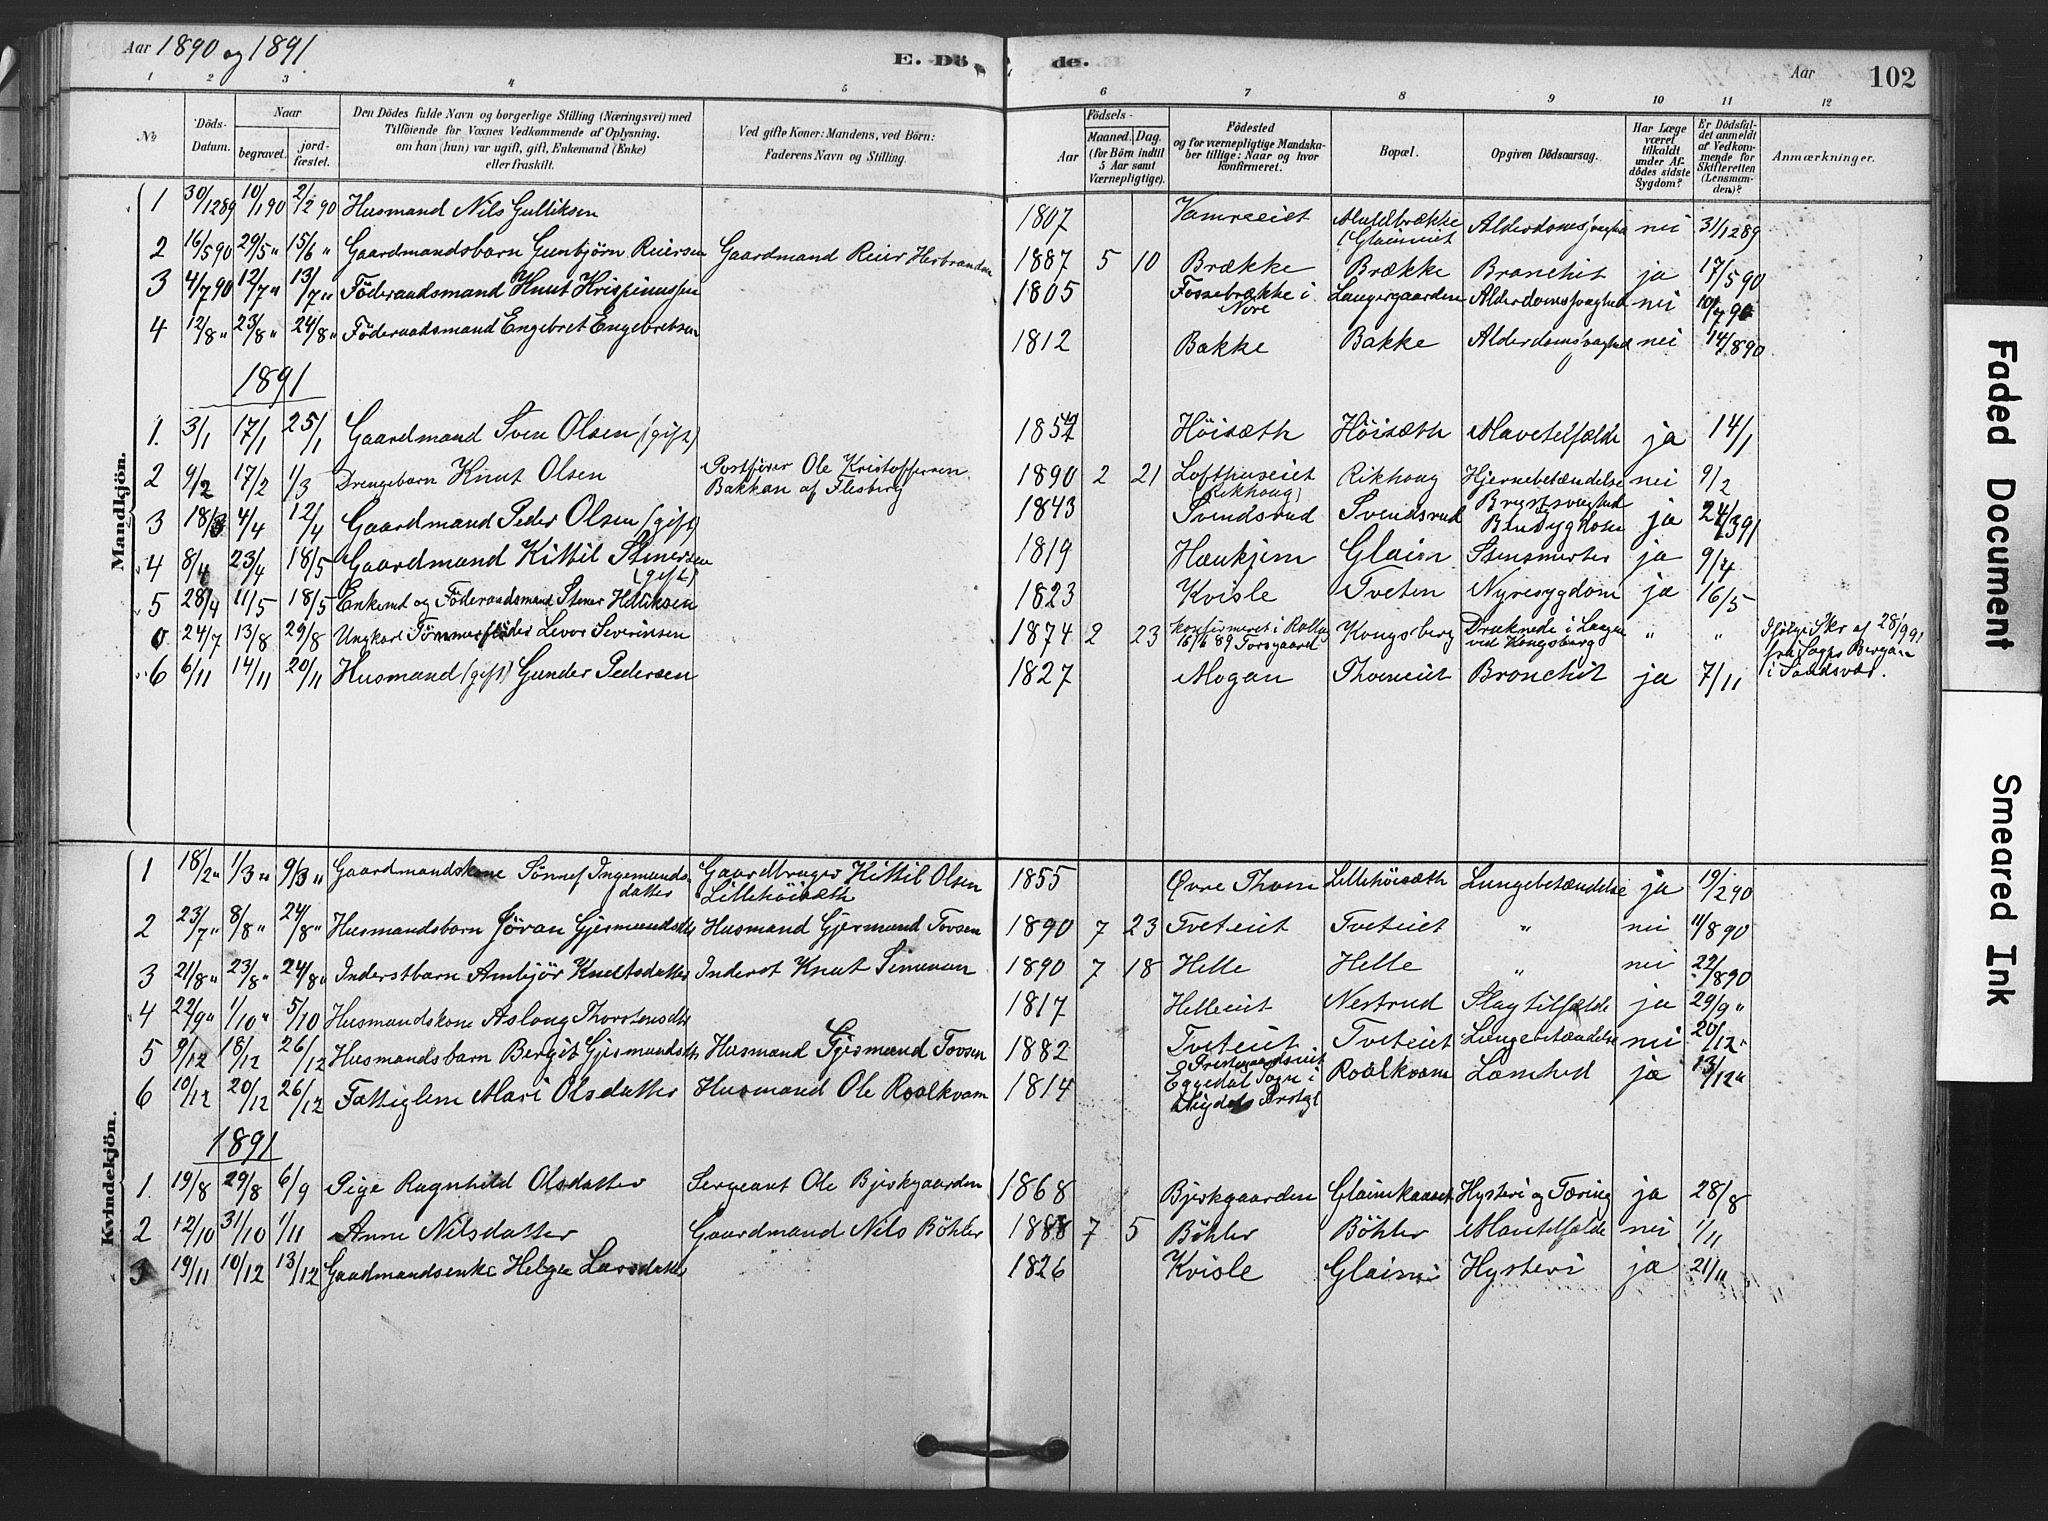 Aar 1890 og 1891
E. Dö de.
Aar 102
1 2 3 4 5 6 7 8 9 10 11 12
№
Döds-Datum.
Naar
begravet. jordfæstet.
Den Dödes fulde Navn og borgerlige Stilling (Næringsvei) med
Tilföiende for Voxnes Vedkommende af Oplysning,
om han (hun) var ugift, gift, Enkemand (Enke)
eller fraskilt.
Ved gifte Koner: Mandens, ved Börn:
Faderens Navn og Stilling.
Födsels-
Aar
Maaned. Dag.
(for Börn indtil
5 Aar samt
Værnepligtige).
Födested
og for værnepligtige Mandska-
ber tillige: Naar og hvor
konfirmeret.
Bopæl.
Opgiven Dödsaarsag.
Har Læge
været
tilkaldt
under Af-
dödes sidste
Sygdom?
Er Dödsfal-
det anmeldt
af Vedkom-
mende for
Skifteretten
(Lensman-
den)?
Anmærkninger.
Mandkjön.
1 30/12 89 10/1 90 2/2 90 Husmand Nils Gulliksen 1807 Alderdomsvaghed nei 31/12 89
2 16/5 90 29/5 " 15/6 " Gaardmandsbarn Gunbjörn Reiersen Gaardmand Reier Herbrandsen 1887 5 10 Brække Brække Bronchit ja 17/5 90
3 4/7 90 12/7 " 13/7 " Föderaadsmand Knut Krispinussen 1805 Fossebrække i Nore Langergaarden Alderdomsvaghed nei 10/7 90
4 12/8 " 23/8 " 24/8 " Föderaadsmand Engebret Engebretsen 1812 Bakke Bakke Alderdomsvaghed nei 14/8 90
1891
1. 3/1 17/1 25/1 Gaardmand Sven Olsen (gift) Höisæth Höisæth Mavetilfælde ja 14/1
2 9/2 17/2 1/3 Drengebarn Knut Olsen Postförer Ole Kristoffersen
Bakkan af Flesberg 1890 2 21 Lofthuseiet
(Rikhoug) Rikhoug Hjernebetændelse nei 9/2
3 18/3 4/4 12/4 Gaardmand Peder Olsen (gift) 1843 Svendsrud Svendsrud Brystsvaghed ja 24/3 91
4 8/4 23/4 18/5 Gaardmand Kittil Stenersen
(gift) 1819 Haukjem Glaim Stensmerter ja 9/4
5 28/4 11/5 18/5 Enkemd og Föderaadsmand Stener Helliksen 1823 Kvisle Tveten Nyresygdom ja 16/5
0 24/7 13/8 29/8 Ungkarl Tömmerflöder Levor Severinsen 1874 2 23 konfirmeret i Rollag
Kongsberg Druknede i Laagen
ved Kongsberg " " Ifölge Skr af 28/9 91
fra Sogne
i Sandsvær.
6 6/11 14/11 20/11 Husmand (gift) Gunder Pedersen 1827 Mogan Thoeneiet Bronchit ja 7/11
Kvindekjön.
1 18/2 " 1/3 " 9/3 " Gaardmandskone Sönnef Ingemunds-
datter Gaardbruger Kittil Olsen
Lillehöisæth 1855 Övre Thoen Lillehöisæth Lungebetændelse ja 19/2 90
2 23/7 " 8/8 " 24/8 " Husmandsbarn Jöran Gjermundsdt Husmand Gjermund Tovsen 1890 7 23 Tveteiet Tveteiet " nei 11/8 90
3 21/8 " 23/8 " 24/8 " Inderstbarn Ambjör Knutsdatter Inderst Knut Simensen 1890 7 18 Helle Helle " nei 22/8 90
4 22/9 " 1/10 " 5/10 Husmandskone Asloug Thorstensdt 1817 Helleeiet Nestrud Slagtilfælde ja 29/9 "
5 9/12 18/12 26/12 Husmandsbarn Bergit Gjermundsdt Husmand Gjermund Tovsen 1882 Tveteiet Tveteiet Lungebetændelse nei 20/12 "
6 10/12 20/12 26/12 Fattiglem Mari Olsdatter Husmand Ole Roalkvam 1814 Prestegaardseiet
Eggedal Sogn i
Sigdals Prstgj Roalkvam Lamhed ja 13/12 "
1891
1. 19/8 29/8 6/9 Pige Ragnhild Olsdatter Sergeant Ole Bjerkgaarden 1868 Bjerkgaarden Hysteri og Tæring ja 28/8
2 12/10 31/10 1/11 Anne Nilsdatter Gaardmand Nils Böhler 7 5 Böhler Böhler Mavetilfælde nei 1/11
3 19/11 10/12 13/12 Gaardmandsenke Helga Larsdatter 1826 Kvisle Glaim Hysteri ja 21/11
Faded Document
Smeared Ink